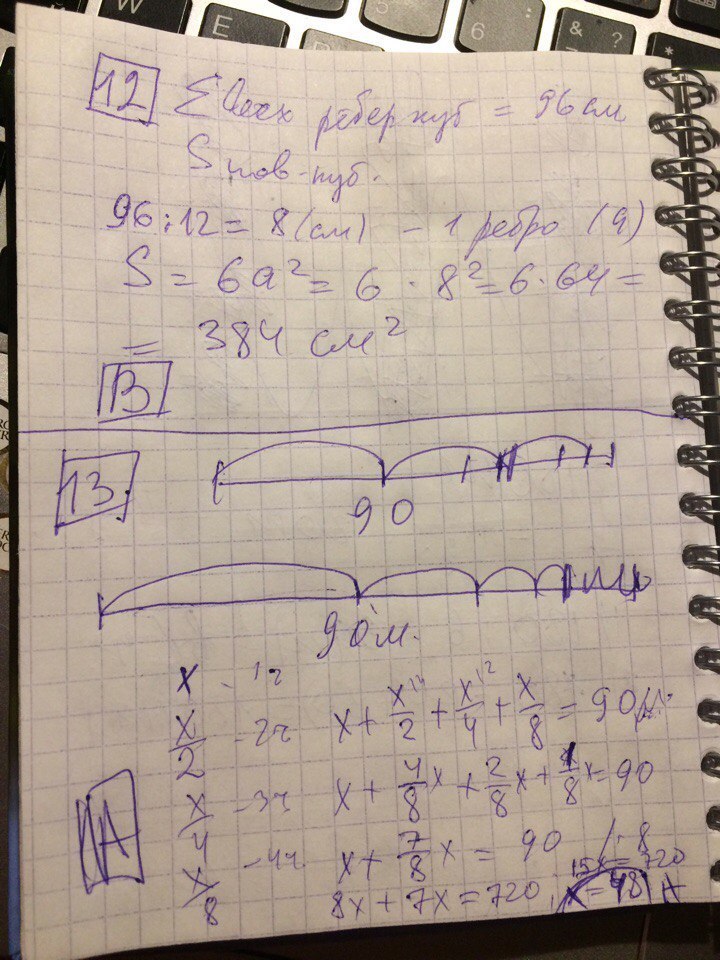 12 Σ всех ребер куб = 96 см
S пов. куб.
96 : 12 = 8 (см) - 1 ребро (a)
S = 6a² = 6 · 8² = 6 · 64 =
= 384 см²
B
13
90
90 м.
x - 1ч
x/2 - 2ч x + x/2 + x/4 + x/8 = 90 м.
x/4 - 3ч x + 4/8 x + 2/8 x + 1/8 x = 90
x/8 - 4ч x + 7/8 x = 90 / · 8
15x = 720
8x + 7x = 720 x = 48 A
A